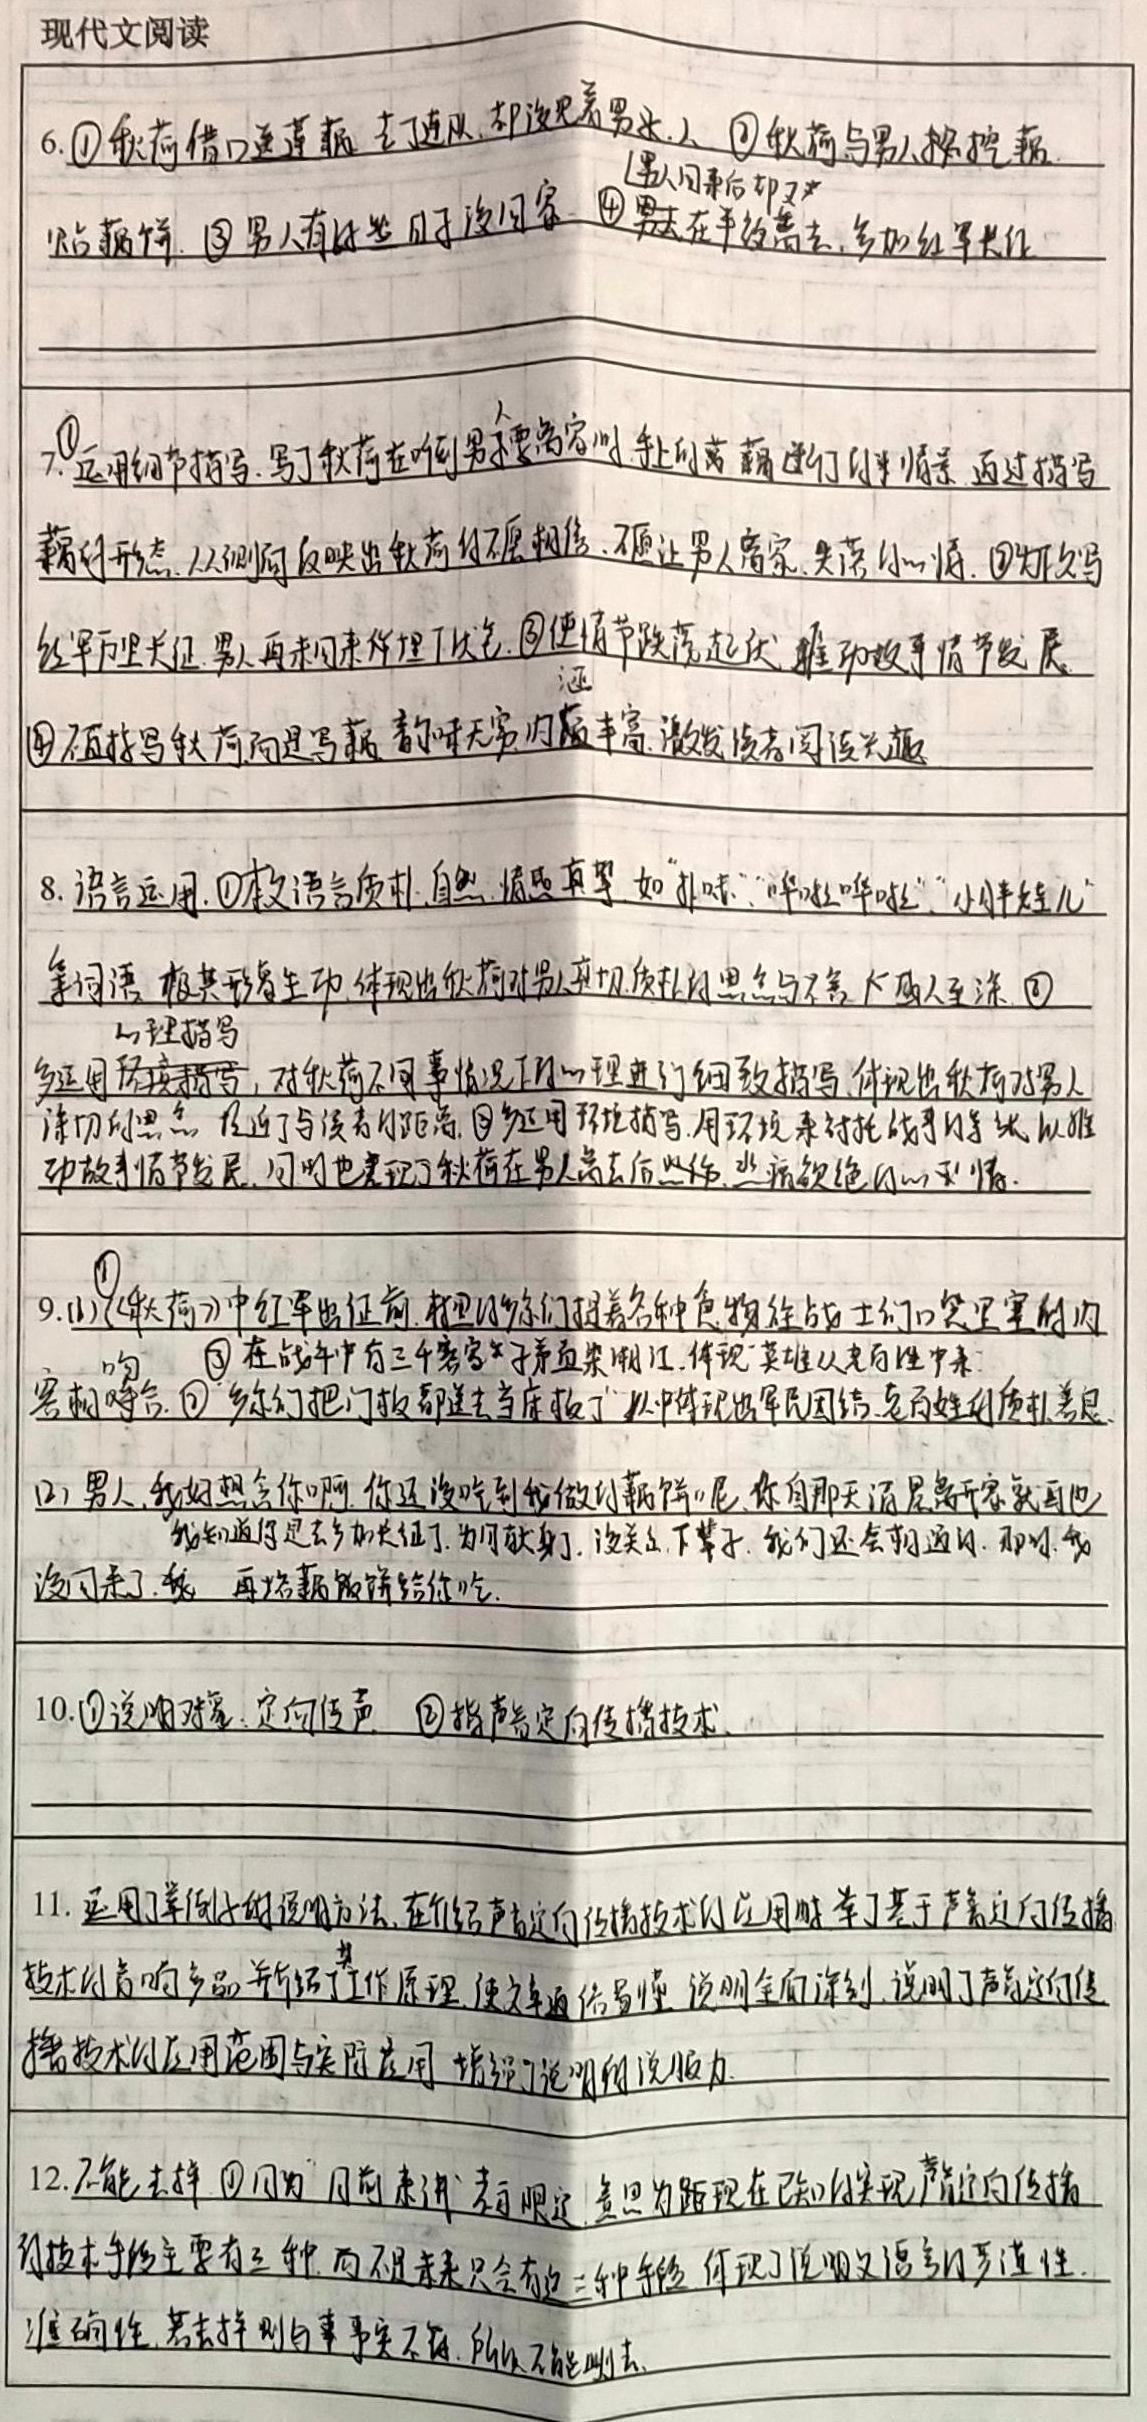 现代文阅读
6.①秋荷借口送莲藕去了连队,却没见着男人 ②秋荷与男人挖藕
烙藕饼. ③男人有好些日子没回家 ④男人回来后却又在半夜离去,参加红军长征
7.①运用细节描写.写了秋荷在听到男人要离家时手上的藕进行的情景.通过描写
藕的形态.从侧面反映出秋荷的不愿相信、不愿让男人离家、失落的心情.②为下文写
红军万里长征.男人再未回来作埋下伏笔.③使情节跌宕起伏 推动故事情节发展
④不直接写秋荷而是写藕 韵味无穷内涵丰富.激发读者阅读兴趣
8.语言运用.①本文语言质朴.自然.情感真挚 如“扑哧”“哗啦哗啦”“小胖娃儿”
等词语 极其形象生动.体现出秋荷对男人真切.质朴的思念与不舍 感人至深.②
多运用心理描写,对秋荷不同事情况下的心理进行细致描写.体现出秋荷对男人
深切的思念 拉近了与读者的距离.③多运用环境描写.用环境来衬托战事的 以推
动故事情节发展.同时也表现了秋荷在男人离去后悲伤.悲痛欲绝的心情.
9.(1)①《秋荷》中红军出征前.村里的乡亲们捏着各种食物往战士们口袋里塞的内
容相吻合.②“乡亲们把门板都送去当床板了”从中体现出军民团结.老百姓的质朴善良.
③在战争中有三千客家子弟血染湘江.体现“英雄从老百姓中来”
(2)男人,我好想念你啊.你还没吃到我做的藕饼呢.你自那天清晨离开家就再也
没回来了.我知道你是去参加长征了.为国献身了.没关系.下辈子.我们还会相遇的.那时.我
再烙藕饼给你吃.
10.①说明对象:定向传声 ②指声音定向传播技术.
11.运用了举例子的说明方法.在介绍声音定向传播技术的应用时举了基于声音定向传播
技术的音响产品 并介绍了其工作原理.使文章通俗易懂 说明全面深刻.说明了声音定向传
播技术的应用范围与实际应用 增强了说明的说服力.
12.不能去掉 ①因为“目前来讲”表示限定.意思为距现在已知的实现声音定向传播
的技术手段主要有三种.而不是未来只会有这三种手段 体现了说明文语言的严谨性.
准确性.若去掉则与事实不符.所以不能删去.